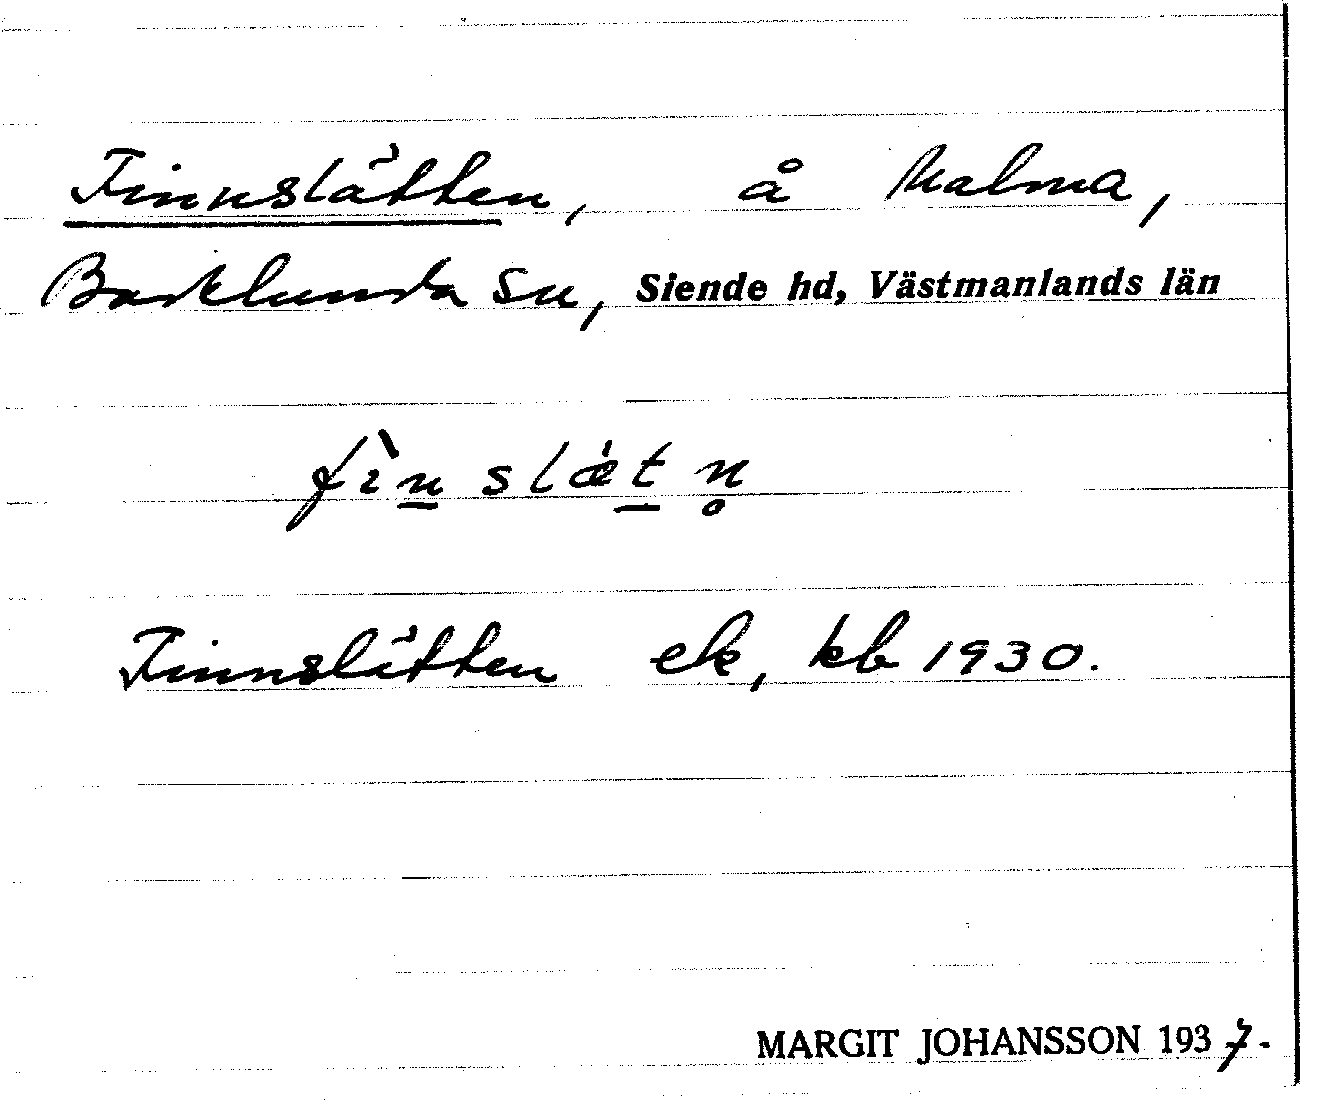 Finnslätten, å Malma,
Badelunda sn, Siende hd, Västmanlands län
fìn̲ slæ̀t̲ n̥
Finnslätten ek, kb 1930.
MARGIT JOHANSSON 1937.